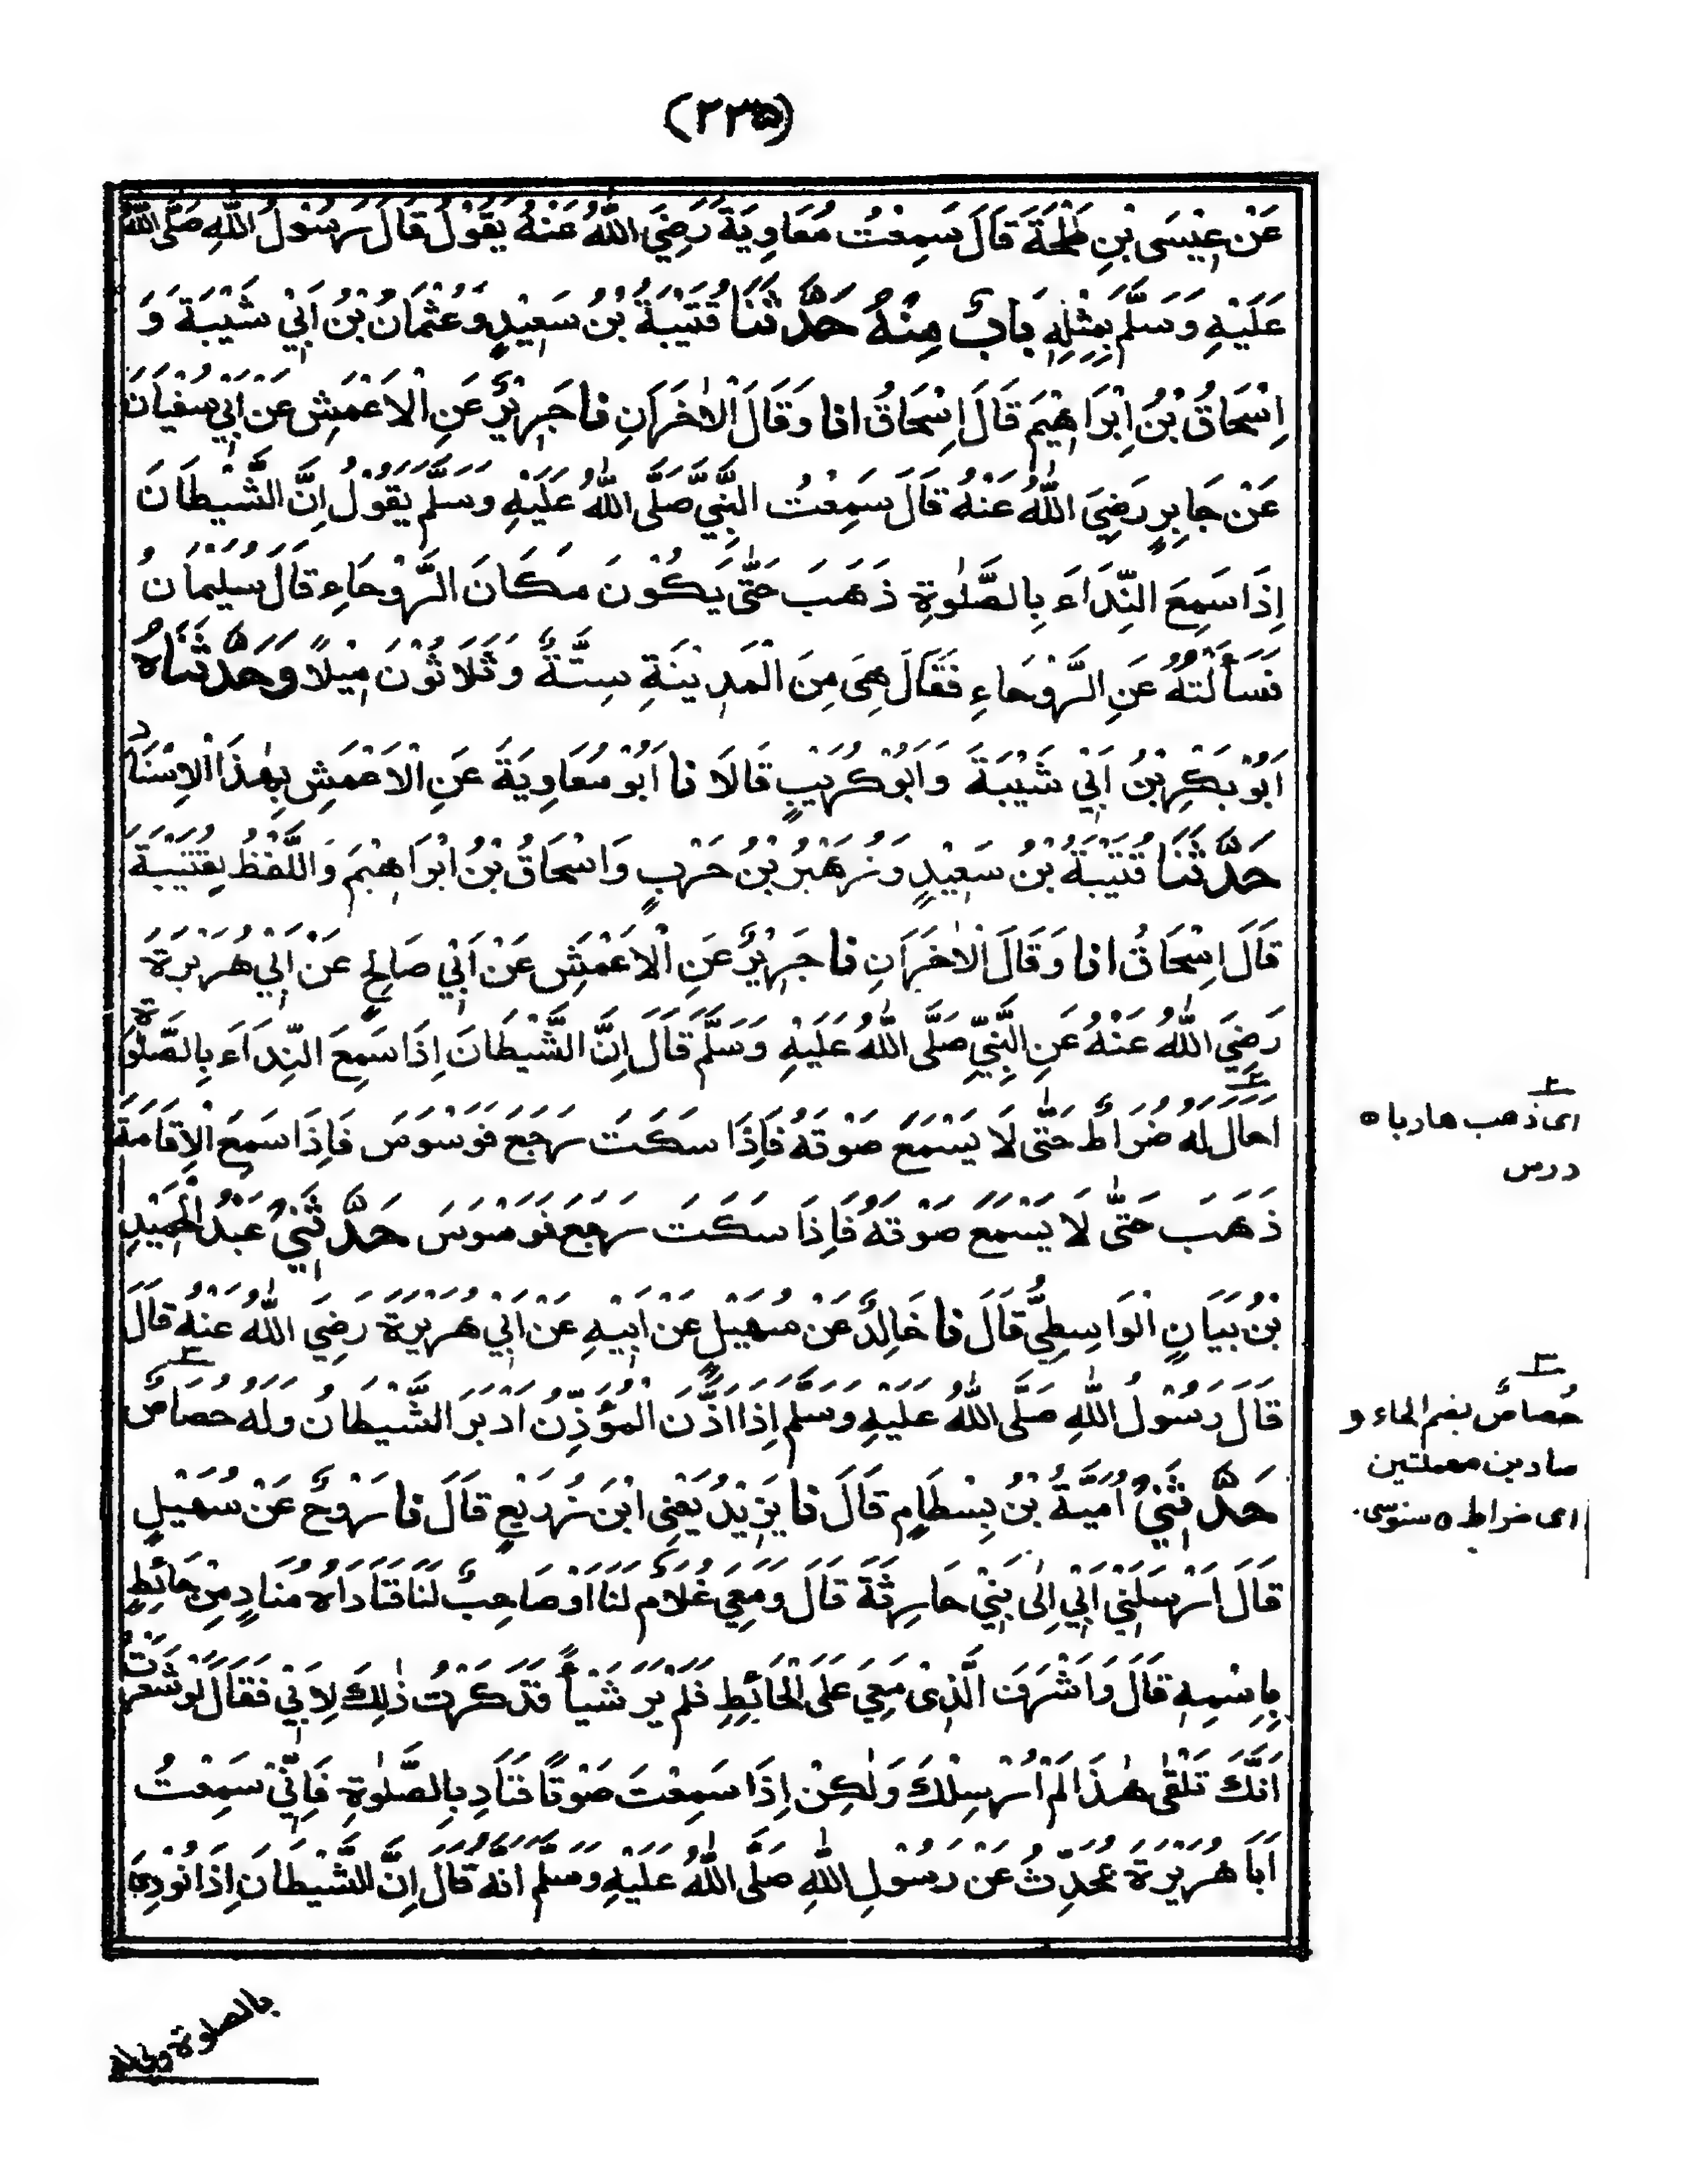 (٢٣٥)
عَنْ عِيْسَى بْنِ طَلْحَةَ قَالَ سَمِعْتُ مُعَاوِيَةَ رَضِيَ اللّٰهُ عَنْهُ يَقُوْلُ قَالَ رَسُوْلُ اللّٰهِ صَلَّى اللّٰهُ
عَلَيْهِ وَسَلَّمَ بِمِثْلِهِ بَابٌ مِنْهُ حَدَّثَنَا قُتَيْبَةُ بْنُ سَعِيْدٍ وَعُثْمَانُ بْنُ اَبِيْ شَيْبَةَ وَ
اِسْحَاقُ بْنُ اِبْرَاهِيْمَ قَالَ اِسْحَاقُ انا وَقَالَ الْاٰخَرَانِ نا جَرِيْرٌ عَنِ الْاَعْمَشِ عَنْ اَبِيْ سُفْيَانَ
عَنْ جَابِرٍ رَضِيَ اللّٰهُ عَنْهُ قَالَ سَمِعْتُ النَّبِيَّ صَلَّى اللّٰهُ عَلَيْهِ وَسَلَّمَ يَقُوْلُ اِنَّ الشَّيْطَانَ
اِذَا سَمِعَ النِّدَاءَ بِالصَّلٰوةِ ذَهَبَ حَتّٰى يَكُوْنَ مَكَانَ الرَّوْحَاءِ قَالَ سُلَيْمَانُ
فَسَأَلْتُهُ عَنِ الرَّوْحَاءِ فَقَالَ هِيَ مِنَ الْمَدِيْنَةِ سِتَّةٌ وَثَلَاثُوْنَ مِيْلًا وَحَدَّثَنَاهُ
اَبُوْ بَكْرِ بْنُ اَبِيْ شَيْبَةَ وَاَبُوْ كُرَيْبٍ قَالَا نا اَبُوْ مُعَاوِيَةَ عَنِ الْاَعْمَشِ بِهٰذَا الْاِسْنَادِ
حَدَّثَنَا قُتَيْبَةُ بْنُ سَعِيْدٍ وَزُهَيْرُ بْنُ حَرْبٍ وَاِسْحَاقُ بْنُ اِبْرَاهِيْمَ وَاللَّفْظُ لِقُتَيْبَةَ
قَالَ اِسْحَاقُ انا وَقَالَ الْاٰخَرَانِ نا جَرِيْرٌ عَنِ الْاَعْمَشِ عَنْ اَبِيْ صَالِحٍ عَنْ اَبِيْ هُرَيْرَةَ
رَضِيَ اللّٰهُ عَنْهُ عَنِ النَّبِيِّ صَلَّى اللّٰهُ عَلَيْهِ وَسَلَّمَ قَالَ اِنَّ الشَّيْطَانَ اِذَا سَمِعَ النِّدَاءَ بِالصَّلٰوةِ
اَحَالَ لَهُ ضُرَاطٌ حَتّٰى لَا يَسْمَعَ صَوْتَهُ فَاِذَا سَكَتَ رَجَعَ فَوَسْوَسَ فَاِذَا سَمِعَ الْاِقَامَةَ
٢
اى ذهب هاربا ٥
درس
ذَهَبَ حَتّٰى لَا يَسْمَعَ صَوْتَهُ فَاِذَا سَكَتَ رَجَعَ فَوَسْوَسَ حَدَّثَنِيْ عَبْدُ الْحَمِيْدِ
بْنُ بَيَانٍ الْوَاسِطِيُّ قَالَ نا خَالِدٌ عَنْ سُهَيْلٍ عَنْ اَبِيْهِ عَنْ اَبِيْ هُرَيْرَةَ رَضِيَ اللّٰهُ عَنْهُ قَالَ
قَالَ رَسُوْلُ اللّٰهِ صَلَّى اللّٰهُ عَلَيْهِ وَسَلَّمَ اِذَا اَذَّنَ الْمُؤَذِّنُ اَدْبَرَ الشَّيْطَانُ وَلَهُ حُصَاصٌ
٣
حُصاصٌ بضم الحاء و
صادين مهملتين
اى ضراط ٥ سنوسى.
حَدَّثَنِيْ اُمَيَّةُ بْنُ بِسْطَامٍ قَالَ نا يَزِيْدُ يَعْنِى ابْنَ زُرَيْعٍ قَالَ نا رَوْحٌ عَنْ سُهَيْلٍ
قَالَ اَرْسَلَنِيْ اَبِيْ اِلٰى بَنِيْ حَارِثَةَ قَالَ وَمَعِيَ غُلَامٌ لَنَا اَوْ صَاحِبٌ لَنَا فَنَادَاهُ مُنَادٍ مِنْ حَائِطٍ
بِاِسْمِهِ قَالَ وَاَشْرَفَ الَّذِىْ مَعِيَ عَلَى الْحَائِطِ فَلَمْ يَرَ شَيْأً فَذَكَرْتُ ذٰلِكَ لِاَبِيْ فَقَالَ لَوْ شَعَرْتُ
اَنَّكَ تَلْقٰى هٰذَا لَمْ اُرْسِلْكَ وَلٰكِنْ اِذَا سَمِعْتَ صَوْتًا فَنَادِ بِالصَّلٰوةِ فَاِنِّيْ سَمِعْتُ
اَبَا هُرَيْرَةَ يُحَدِّثُ عَنْ رَسُوْلِ اللّٰهِ صَلَّى اللّٰهُ عَلَيْهِ وَسَلَّمَ اَنَّهُ قَالَ اِنَّ الشَّيْطَانَ اِذَا نُوْدِىَ
بالصلوة ولى وله